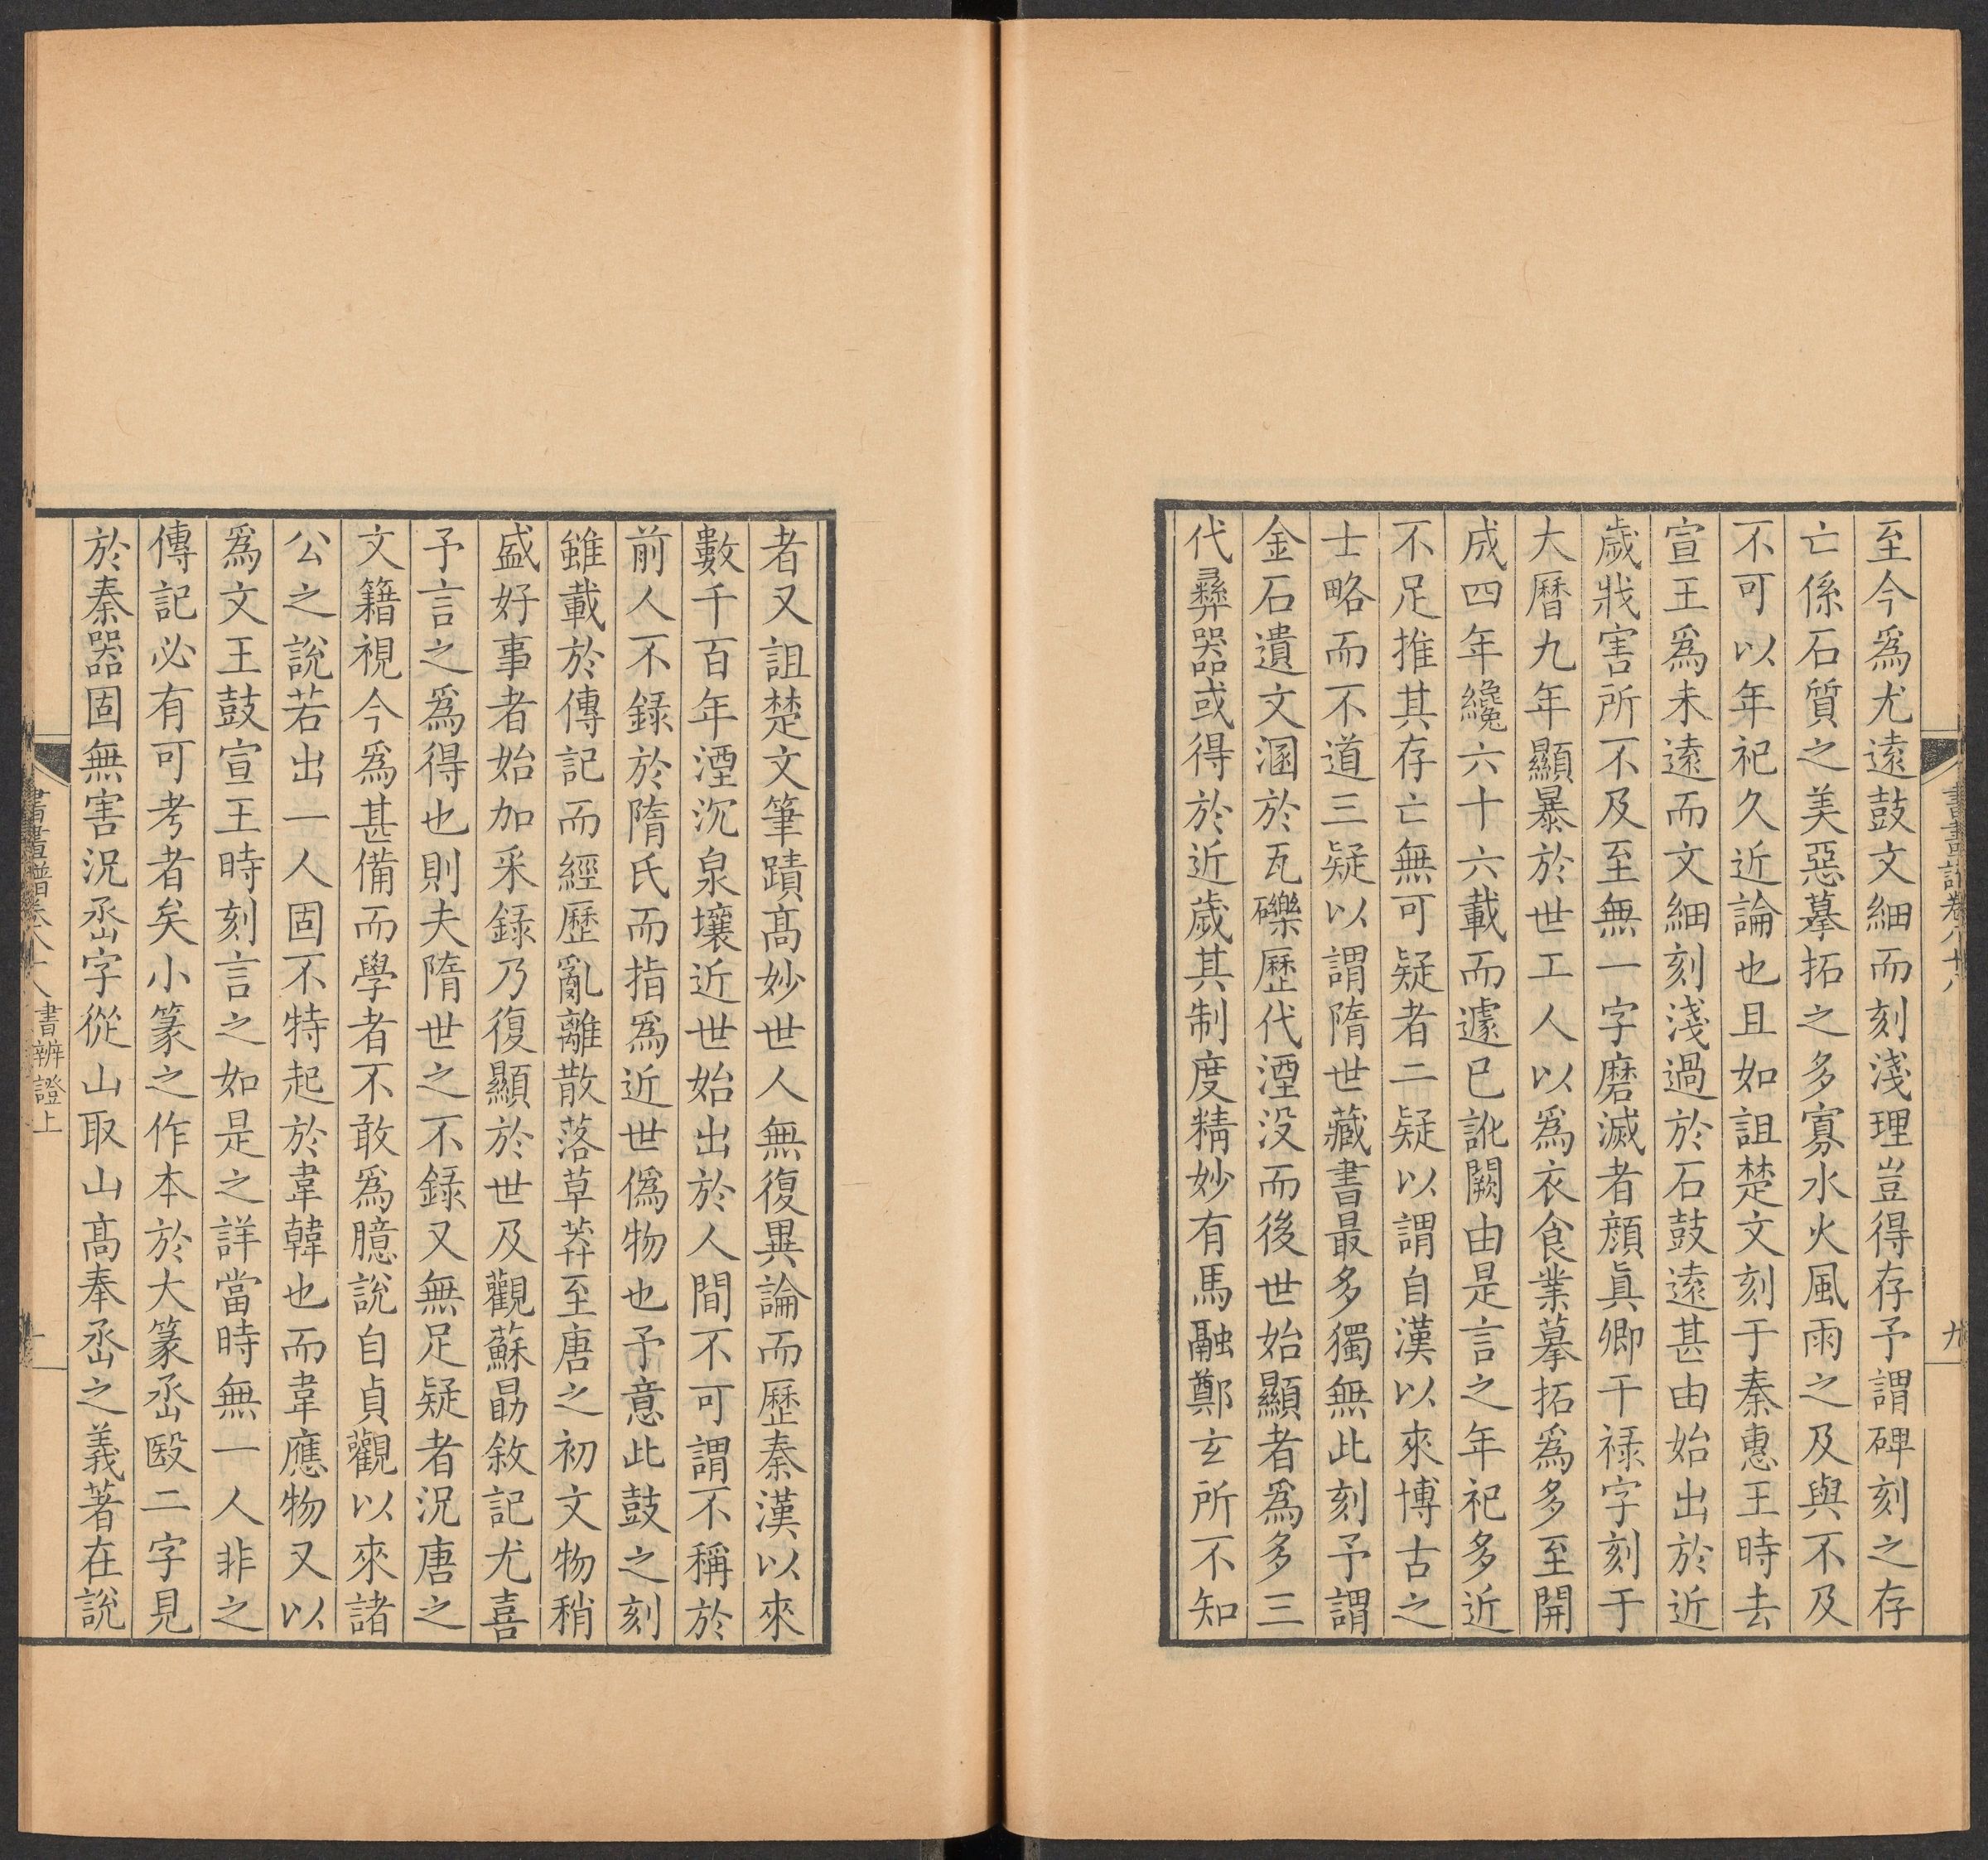 至今爲尤遠鼓文細而刻淺理豈得存予謂碑刻之存
亡係石質之美惡摹拓之多寡水火風雨之及與不及
不可以年祀久近論也且如詛楚文刻于秦惠王時去
宣王爲未遠而文細刻淺過於石鼓遠甚由始出於近
歲戕害所不及至無一字磨滅者顔眞卿干祿字刻于
大曆九年顯暴於世工人以爲衣食業摹拓爲多至開
成四年纔六十六載而遽已訛闕由是言之年祀多近
不足推其存亡無可疑者二疑以謂自漢以來博古之
士略而不道三疑以謂隋世藏書最多獨無此刻予謂
金石遺文溷於瓦礫歷代湮没而後世始顯者爲多三
代彝器或得於近歲其制度精妙有馬融鄭玄所不知
者又詛楚文筆蹟髙妙世人無復異論而歷秦漢以來
數千百年湮沉泉壤近世始出於人間不可謂不稱於
前人不錄於隋氏而指爲近世僞物也予意此鼓之刻
雖載於傳記而經歷亂離散落草莽至唐之初文物稍
盛好事者始加采錄乃復顯於世及觀蘇勗敘記尤喜
予言之爲得也則夫隋世之不錄又無足疑者況唐之
文籍視今爲甚備而學者不敢爲臆說自貞觀以來諸
公之說若出一人固不特起於韋韓也而韋應物又以
爲文王鼓宣王時刻言之如是之詳當時無一人非之
傳記必有可考者矣小篆之作本於大篆烝殹二字見
於秦器固無害況烝字從山取山髙奉烝之義著在說
書畫譜卷八十八
九
書辨證上